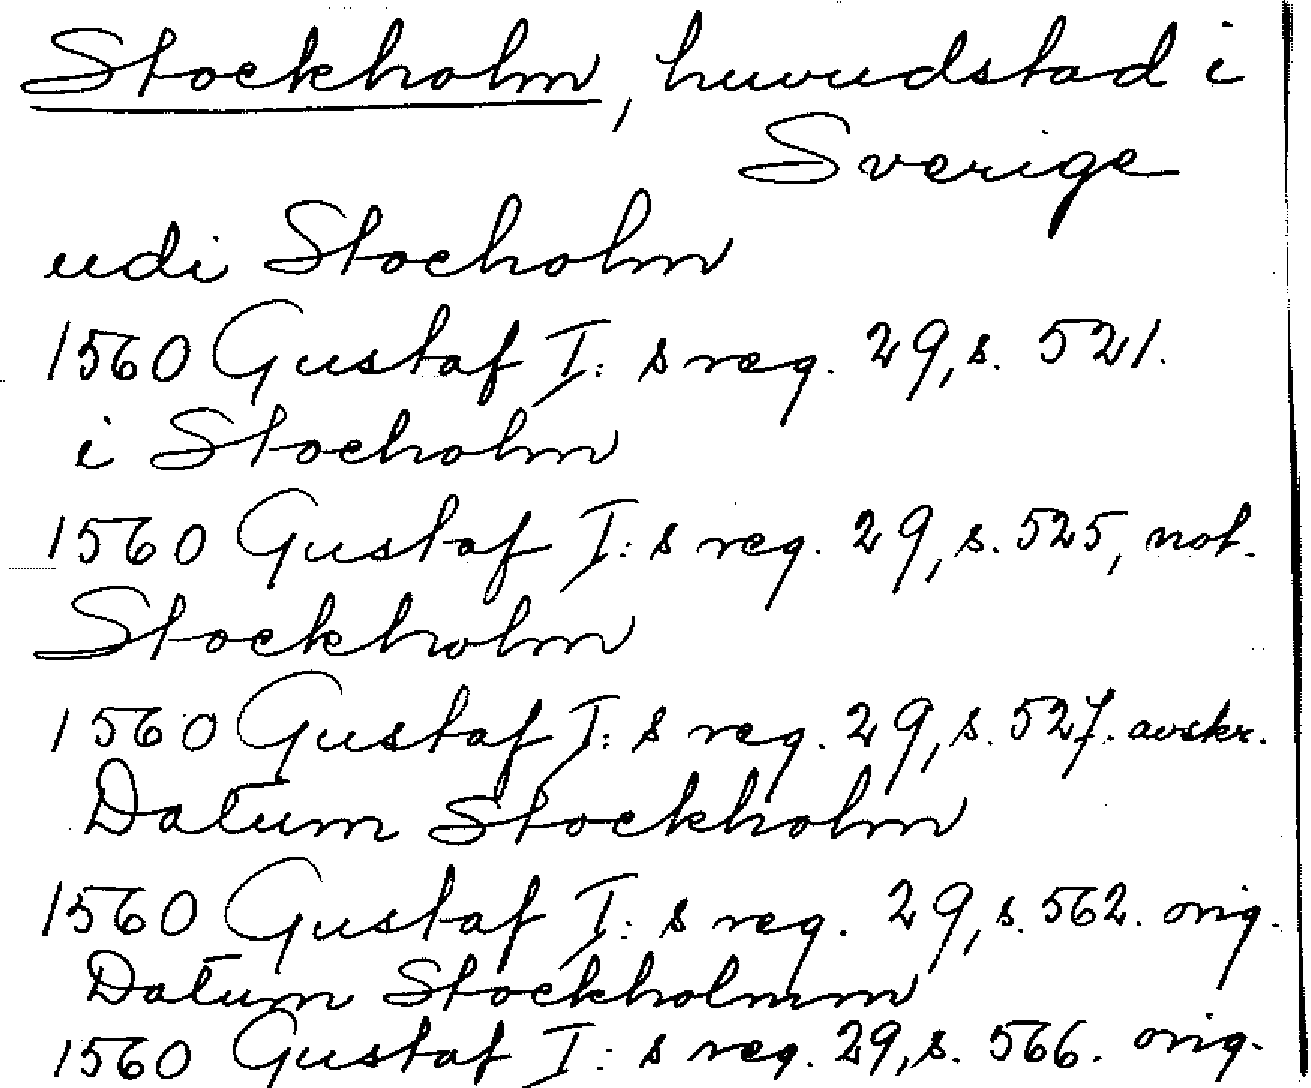 Stockholm, huvudstad i
Sverige
udi Stocholm
1560 Gustaf I:s reg. 29, s. 521.
i Stocholm
1560 Gustaf I:s reg. 29, s. 525, not.
Stockholm
1560 Gustaf I:s reg. 29, s. 527. avskr.
Datum Stockholm
1560 Gustaf I:s reg. 29, s. 562. orig.
Datum Stockholmm
1560 Gustaf I:s reg. 29, s. 566. orig.